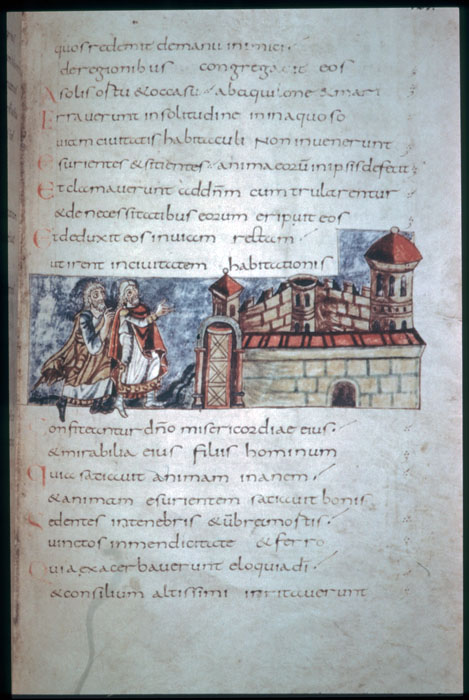 quos redemit de manu inimici
de regionibus congregavit eos
A solis ortu & occasu ab aquilone & mari
Erraverunt insolitudine in inaquoso
viam civitatis habitaculi Non invenerunt
Esurientes & sitientes anima eorū in ipsis defecit
Et clamaverunt ad dn̄m cum tribularentur
& de necessitatibus eorum eripuit eos
Et deduxit eos in viam rectam
ut irent in civitatem habitationis
Confiteantur dn̄o misericordiae eius
& mirabilia eius filiis hominum
quia satiavit animam inanem
& animam esurientem satiavit bonis
Sedentes in tenebris & ūbra mortis
vinctos in mendicitate & ferro
Quia exacerbaverunt eloquia dī
& consilium altissimi inritaverunt